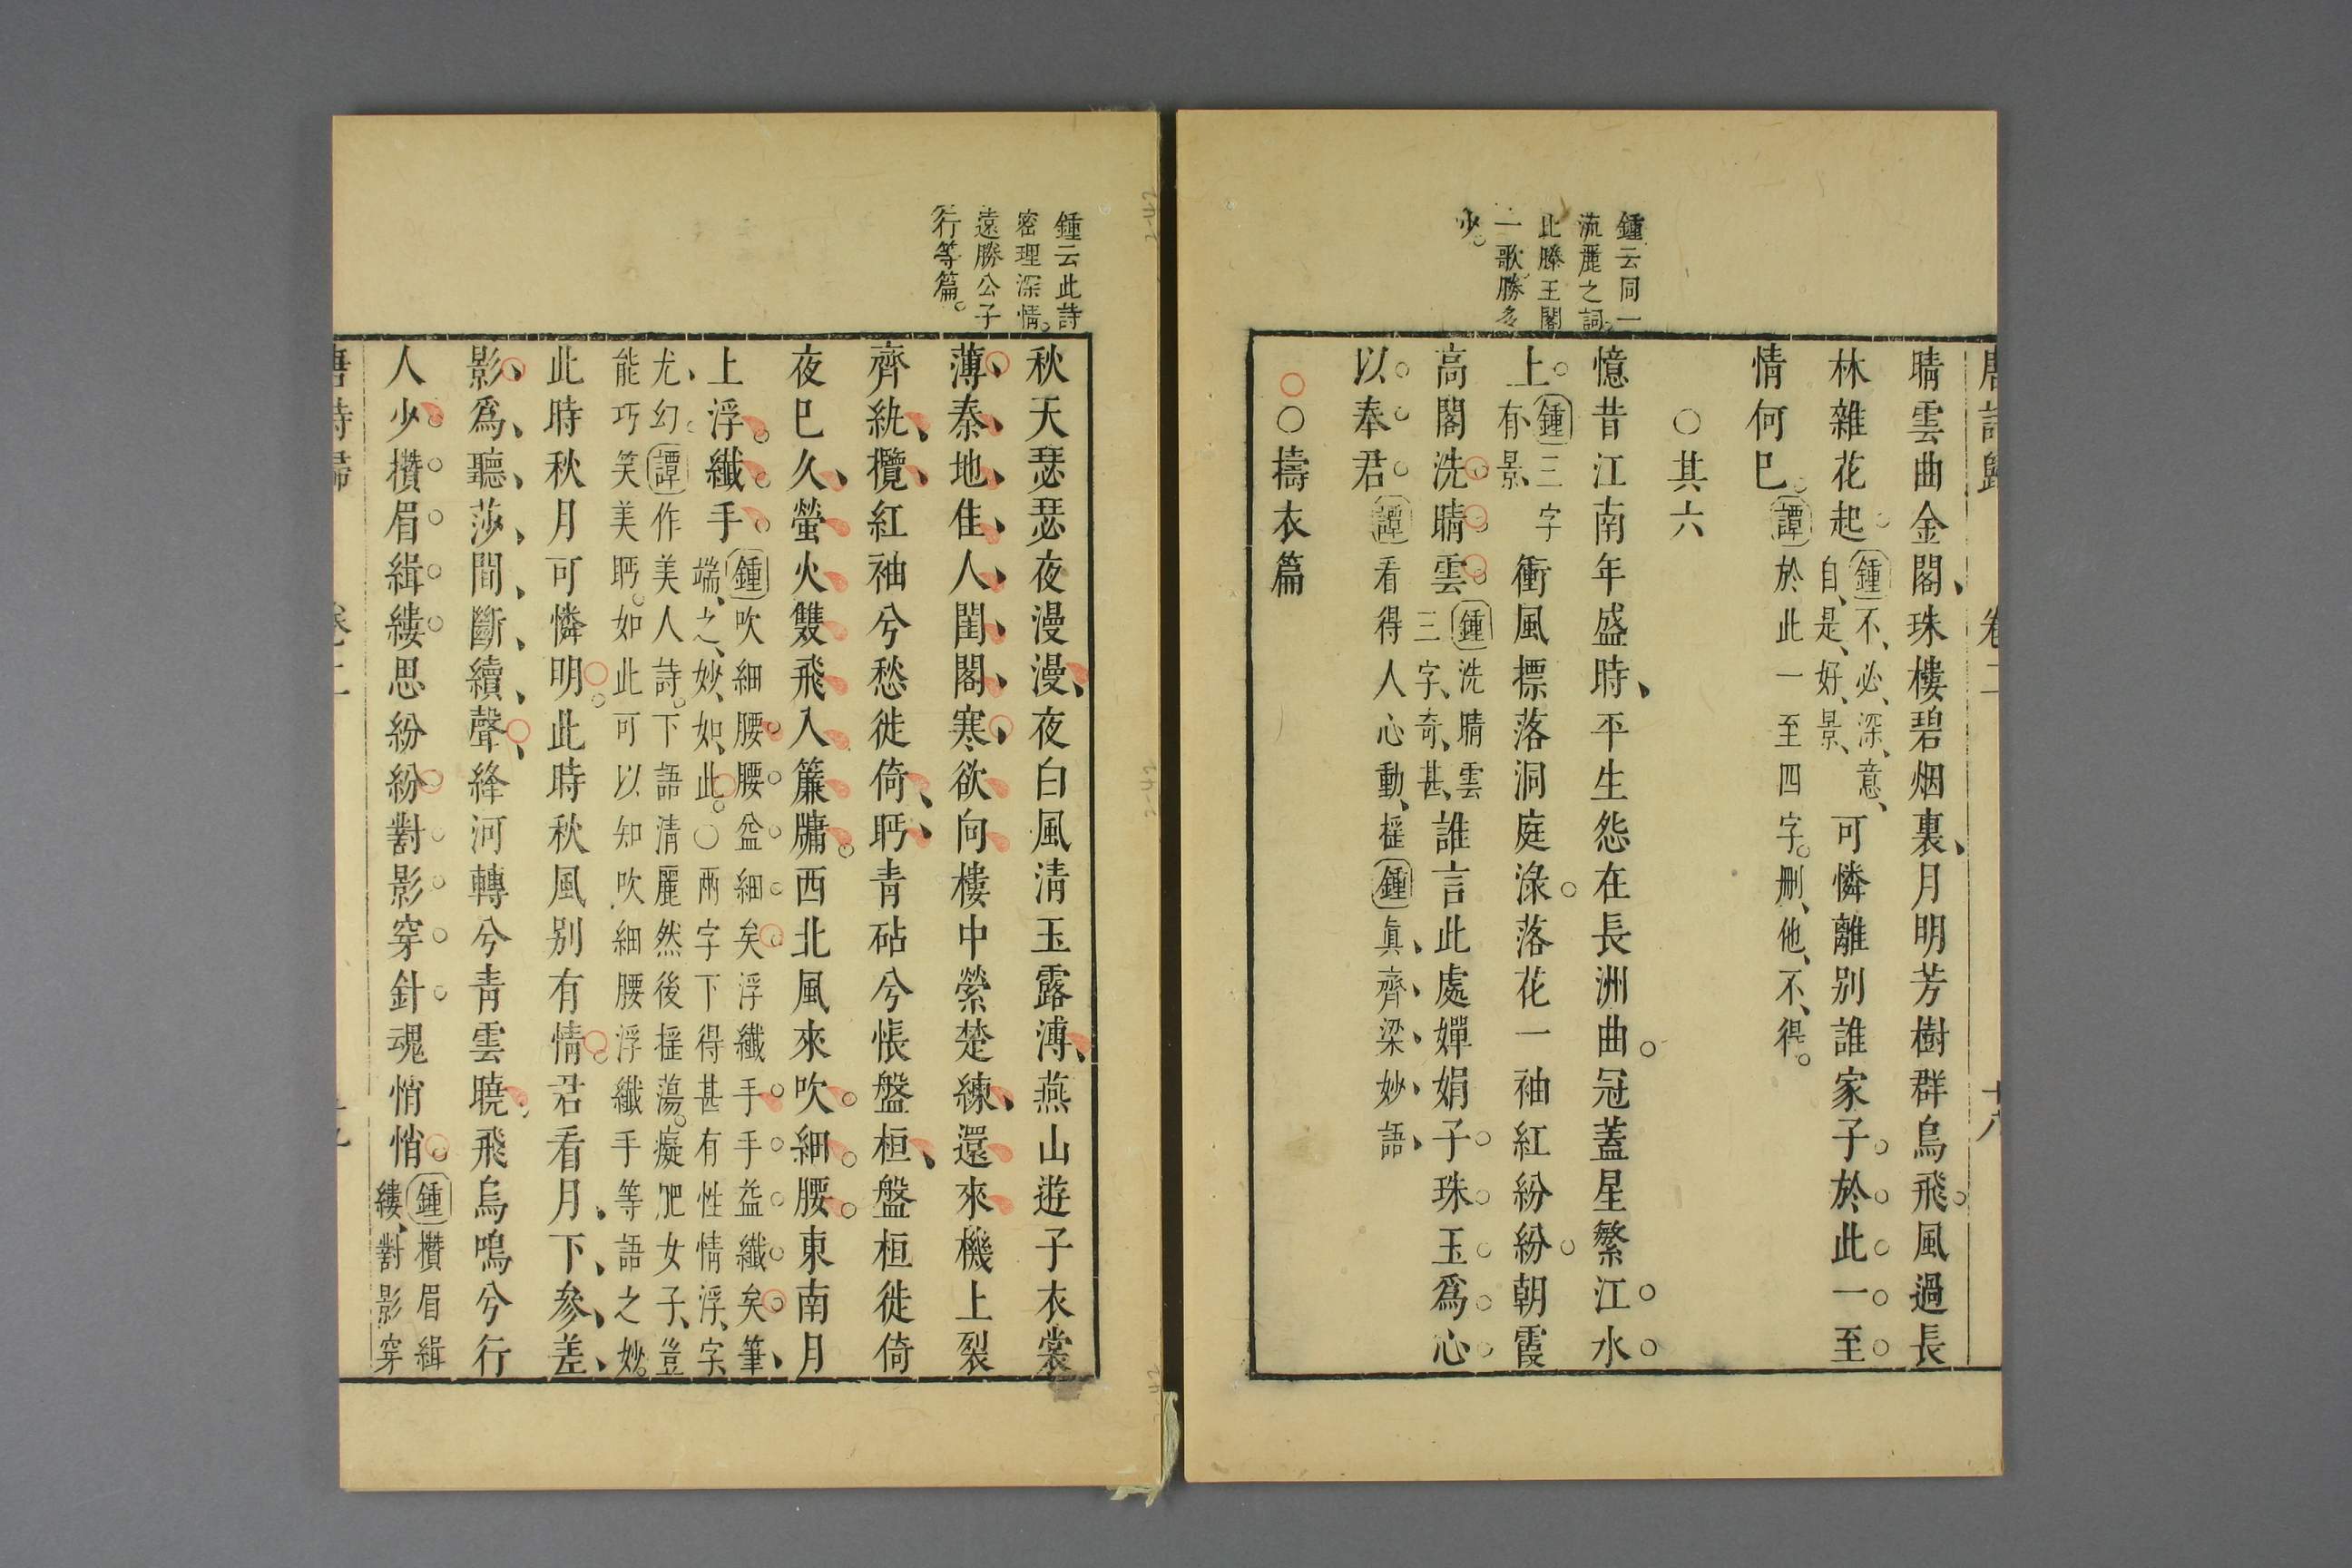 唐詩歸　卷二　十八
晴雲曲金閣珠樓碧烟裏月明芳樹群鳥飛風過長
林雜花起
鍾不必深意
自是好景
可憐離别誰家子於此一至
情何已
譚於此一至四字删他不得
○其六
憶昔江南年盛時平生怨在長洲曲冠蓋星繁江水
上
鍾三字
有景
衝風摽落洞庭淥落花一袖紅紛紛朝霞
高閣洗晴雲
鍾洗晴雲
三字奇甚
誰言此處嬋娟子珠玉爲心
以奉君
譚看得人心動揺鍾眞齊梁妙語
○擣衣篇
鍾云同一
流麗之詞
此滕王閣
一歌勝多
少
秋天瑟瑟夜漫漫夜白風清玉露漙燕山遊子衣裳
薄秦地佳人閨閣寒欲向樓中縈楚練還來機上裂
齊紈攬紅袖兮愁徙倚眄青砧兮悵盤桓盤桓徙倚
夜已久螢火雙飛入簾牗西北風來吹細腰東南月
上浮纖手
鍾吹細腰腰益細矣浮纖手手益纖矣筆
端之妙如此○兩字下得甚有性情浮字
尤幻譚作美人詩下語清麗然後揺蕩癡肥女子豈
能巧笑美眄如此可以知吹細腰浮纖手等語之妙
此時秋月可憐明此時秋風别有情君看月下參差
影爲聽莎間斷續聲絳河轉兮青雲曉飛鳥鳴兮行
人少攅眉緝縷思紛紛對影穿針魂悄悄
鍾攅眉緝
縷對影穿
唐詩歸　卷二　十九
鍾云此詩
密理深情
遠勝公子
行等篇